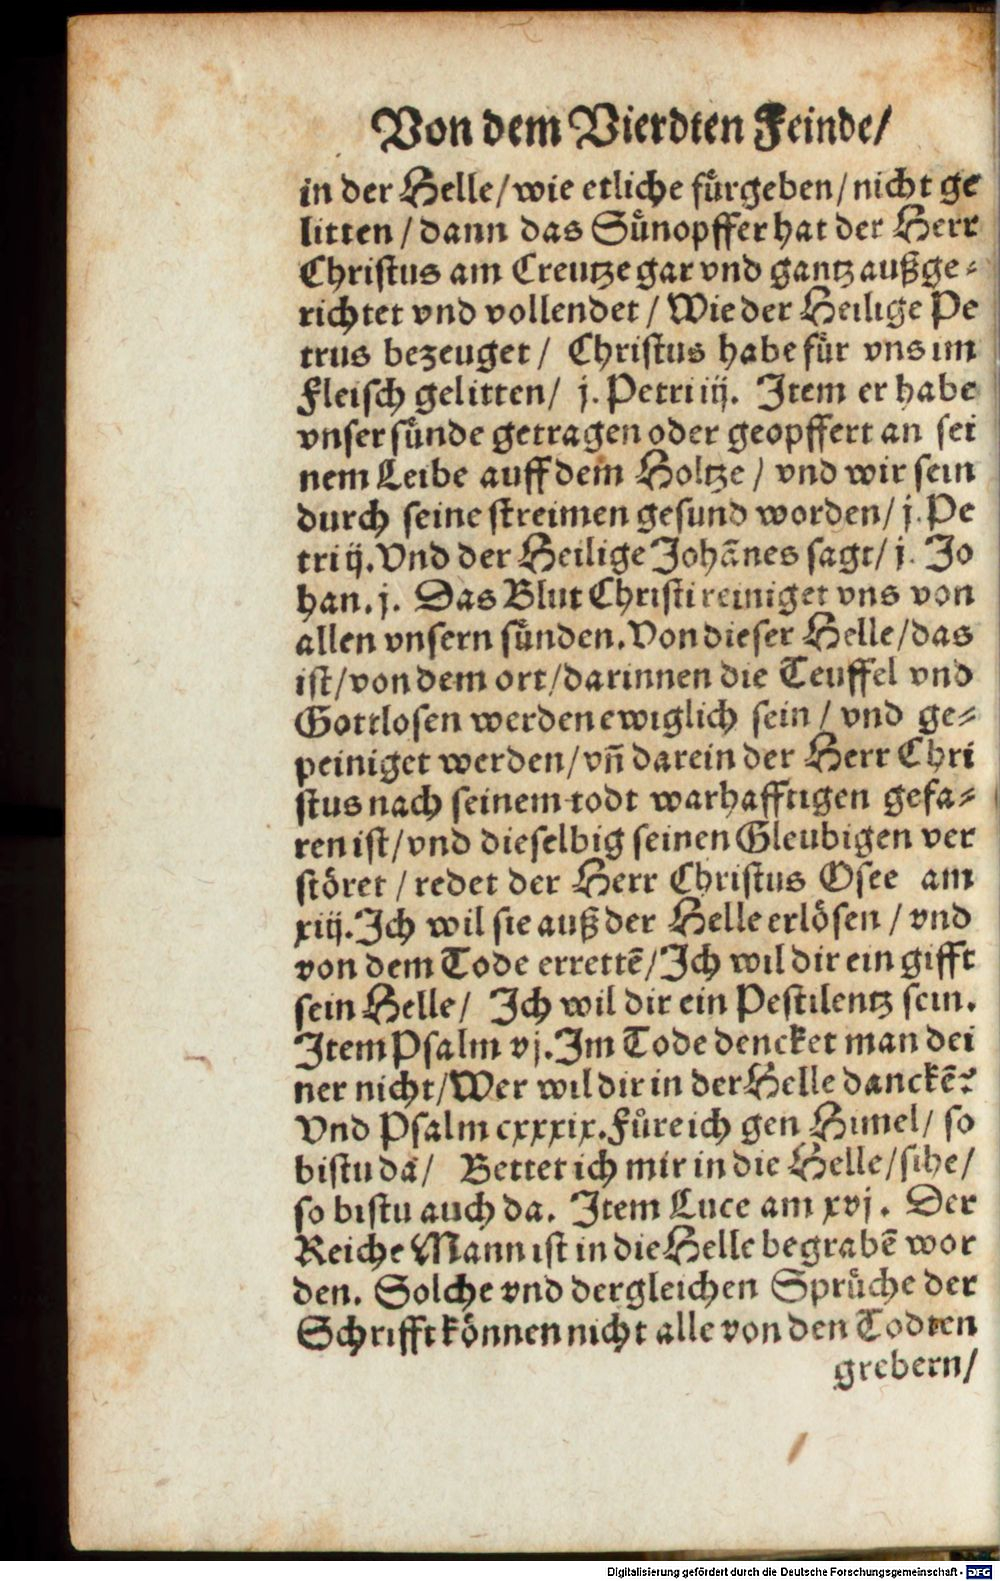 Von dem Vierdten Feinde/
in der Helle/wie etliche fürgeben/nicht ge
litten/dann das Sünopffer hat der Herr
Christus am Creutze gar vnd gantz außge⸗
richtet vnd vollendet/Wie der Heilige Pe
trus bezeuget/ Christus habe für vns im
Fleisch gelitten/ j. Petri iij. Item er habe
vnser sünde getragen oder geopffert an sei
nem Leibe auff dem Holtze/ vnd wir sein
durch seine streimen gesund worden/ j. Pe
tri ij. Vnd der Heilige Johãnes sagt/ j. Jo
han. j. Das Blut Christi reiniget vns von
allen vnsern sünden. Von dieser Helle/das
ist/von dem ort/darinnen die Teuffel vnd
Gottlosen werden ewiglich sein/ vnd ge⸗
peiniget werden/vñ darein der Herr Chri
stus nach seinem todt warhafftigen gefa⸗
ren ist/vnd dieselbig seinen Gleubigen ver
störet/redet der Herr Christus Osee am
xiij. Ich wil sie auß der Helle erlösen/ vnd
von dem Tode errettẽ/Ich wil dir ein gifft
sein Helle/ Ich wil dir ein Pestilentz sein.
Item Psalm vj. Im Tode dencket man dei
ner nicht/Wer wil dir in der Helle danckẽ?
Vnd Psalm cxxxix. Füre ich gen Himel/ so
bistu da/ Bettet ich mir in die Helle/sihe/
so bistu auch da. Item Luce am xvj. Der
Reiche Mann ist in die Helle begrabẽ wor
den. Solche vnd dergleichen Sprüche der
Schrifft können nicht alle von den Todten
grebern/
Digitalisierung gefördert durch die Deutsche Forschungsgemeinschaft - DFG